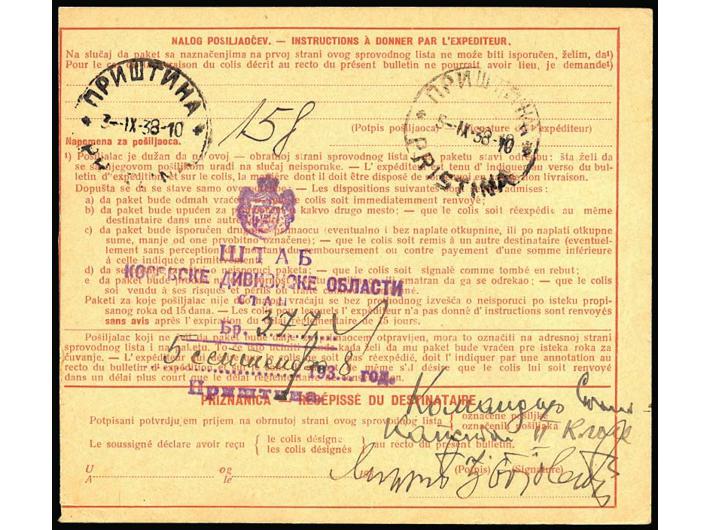 NALOG POSILJAOČEV. — INSTRUCTIONS À DONNER PAR L'EXPEDITEUR.
Na slučaj da paket sa naznačenjima na prvoj strani ovog sprovodnog lista ne može biti isporučen, želim, da¹)
Pour le cas où la livraison du colis décrit au recto du présent bulletin ne pourrait avoir lieu, je demande¹)
ПРИШТИНА
5-IX-38-10
ПРИШТИНА
5-IX-38-10
PRIŠTINA
158
(Potpis pošiljaoca) (Signature de l'expéditeur)
Napomena za pošiljaoca.
¹) Pošiljalac je dužan na ovoj — obratnoj strani sprovodnog lista — i na paketu staviti odredbu: šta želi da
se sa njegovom pošiljkom uradi na slučaj neisporuke. — L'expéditeur est tenu d'indiquer au verso du
bulletin d'expédition et sur le colis, la manière dont il doit être disposé de l'envoi en cas de non livraison.
Dopušta se da se stave samo ove odredbe: — Les dispositions suivantes sont seules admises:
a) da paket bude odmah vraćen; — que le colis soit immédiatement renvoyé;
b) da paket bude upućen za primaoca u kakvo drugo mesto; — que le colis soit réexpédié au même
destinataire dans une autre localité;
c) da paket bude isporučen drugom primaocu (eventualno i bez naplate otkupnine, ili po naplati otkupne
sume, manje od one prvobitno označene); — que le colis soit remis à un autre destinataire (éventuel-
lement sans perception du montant du remboursement ou contre payement d'une somme inférieure
à celle indiquée primitivement);
d) da se o neisporuci paketa; — que le colis soit signalé comme tombé en rebut;
e) da paket bude smatran da ga se odrekao; — que le colis
soit vendu à ses risques et périls ou traité comme abandonné.
Paketi za koje pošiljalac nije dao nalog vraćaju se bez prethodnog izvešća o neisporuci po isteku propi-
sanog roka od 15 dana. — Les colis pour lesquels l'expéditeur n'a pas donné d'instructions sont renvoyés
sans avis après l'expiration du délai réglementaire de 15 jours.
ШТАБ
КОСОВСКЕ ДИВИЗИСКЕ ОБЛАСТИ
СТАН
Бр. 377
5 септембра 1938 год.
Приштина
Pošiljalac koji ne želi da paket bude otpravljen, mora to označiti na adresnoj strani
sprovodnog lista i na paketu. — To se ima učiniti i kada želi da mu paket bude vraćen pre isteka roka za
čuvanje. — L'expéditeur qui ne désire pas que le colis soit réexpédié, doit l'indiquer par une annotation au
recto du bulletin d'expédition et sur le colis. Il doit en être de même s'il désire que le colis lui soit renvoyé
dans un délai plus court que le délai réglementaire.
PRIZNANICA — RÉCÉPISSÉ DU DESTINATAIRE
Командир
Potpisani potvrđujem prijem na obrnutoj strani ovog sprovodnog lista označenog paketa označenih pošiljaka
Капетан II класе
Le soussigné déclare avoir reçu le colis désigné les colis désignés au recto du présent bulletin.
U og (Potpis) (Signature)
A le